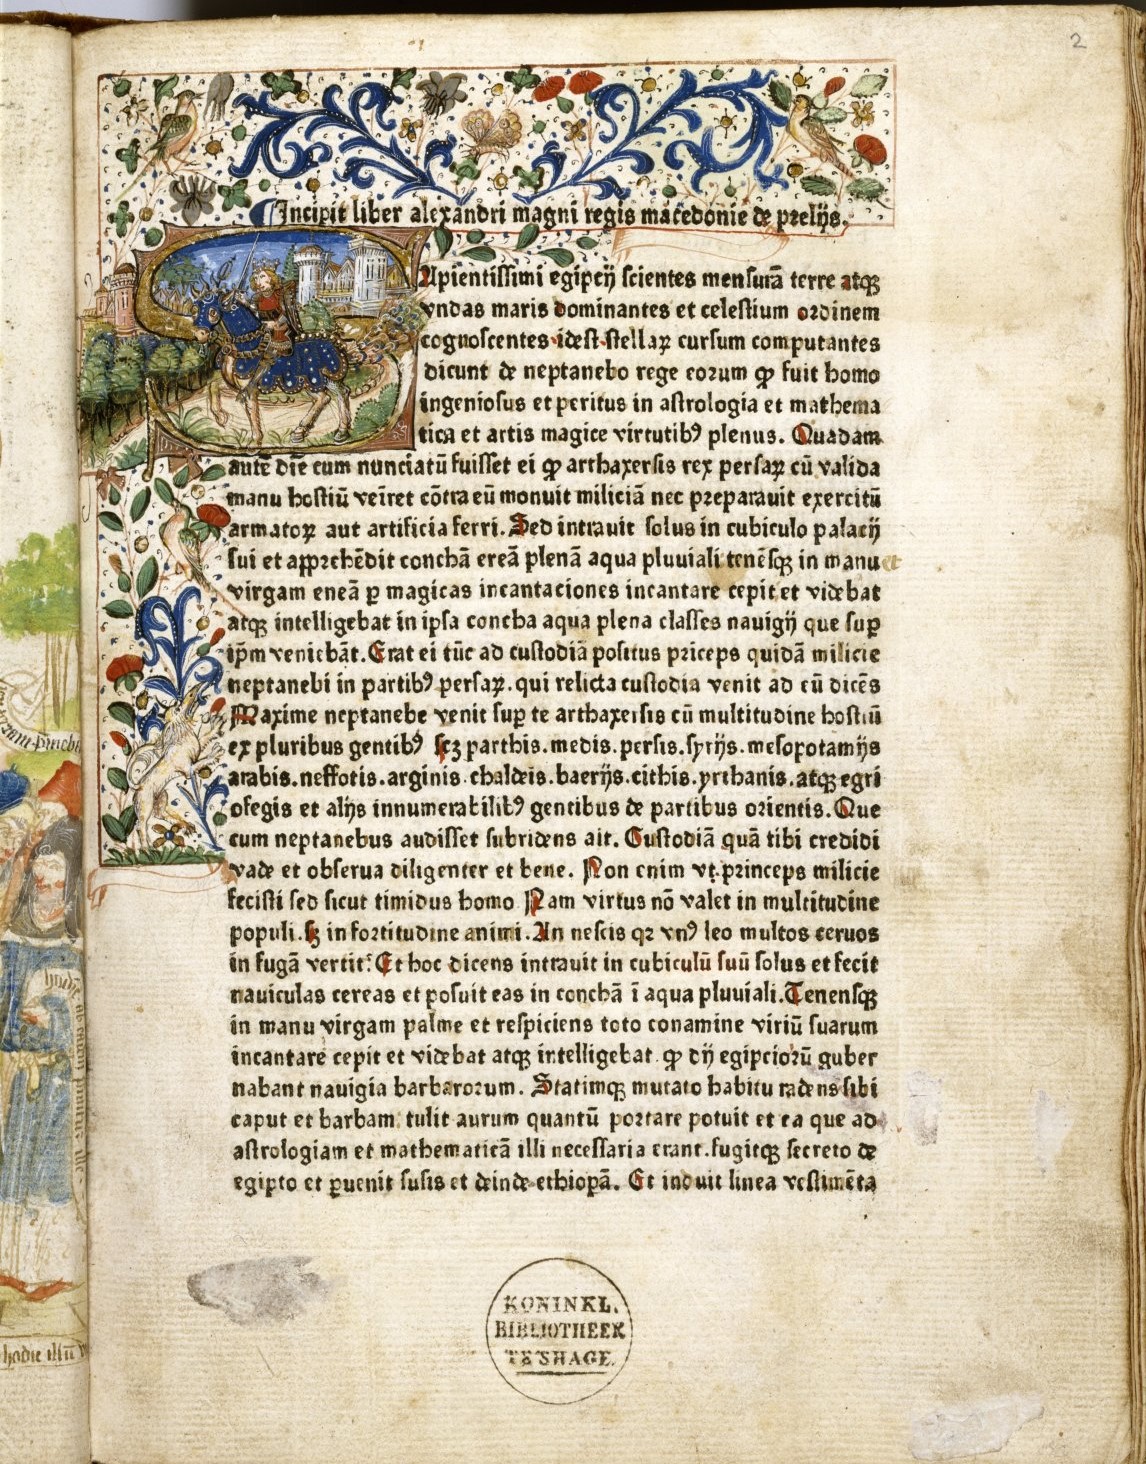 2
Incipit liber alexandri magni regis macedonie de prelijs.
Apientissimi egiptij scientes mensurā terre atqꝫ
vndas maris dominantes et celestium ordinem
cognoscentes.idest.stellaꝝ cursum computantes
dicunt de neptanebo rege eorum ꝙ fuit homo
ingeniosus et peritus in astrologia et mathema
tica et artis magice virtutibꝰ plenus. Quadam
autē die cum nunciatū fuisset ei ꝙ arthaxersis rex persaꝝ cū valida
manu hostiū veīret cōtra eū monuit miliciā nec preparauit exercitū
armatoꝝ aut artificia ferri. Sed intrauit solus in cubiculo palacij
sui et apprehēdit conchā ereā plenā aqua pluuiali tenēsqꝫ in manu
virgam eneā ꝑ magicas incantaciones incantare cepit et videbat
atqꝫ intelligebat in ipsa concha aqua plena classes nauigij que suꝑ
ip̄m veniebāt. Erat ei tūc ad custodiā positus prīceps quidā milicie
neptanebi in partibꝰ persaꝝ. qui relicta custodia venit ad eū dicēs
Maxime neptanebe venit suꝑ te arthaxersis cū multitudine hostiū
ex pluribus gentibꝰ scꝫ parthis. medis. persis. syrijs. mesopotamijs
arabis. neffotis. arginis. chaldeis. baerijs. cithis. yrthanis. atqꝫ egri
ofegis et alijs innumerabilibꝰ gentibus de partibus orientis. Que
cum neptanebus audisset subridens ait. Custodiā quā tibi credidi
vade et obserua diligenter et bene. Non enim vt princeps milicie
fecisti sed sicut timidus homo Nam virtus nō valet in multitudine
populi. sꝫ in fortitudine animi. An nescis qꝛ vnꝰ leo multos ceruos
in fugā vertit? Et hoc dicens intrauit in cubiculū suū solus et fecit
nauiculas cereas et posuit eas in conchā ī aqua pluuiali. Tenensqꝫ
in manu virgam palme et respiciens toto conamine viriū suarum
incantare cepit et videbat atqꝫ intelligebat ꝙ dij egipciorū guber
nabant nauigia barbarorum. Statimqꝫ mutato habitu radens sibi
caput et barbam tulit aurum quantū portare potuit et ea que ad
astrologiam et mathematicā illi necessaria erant. fugitqꝫ secreto de
egipto et ꝑuenit susis et deinde ethiopā. Et induit linea vestimēta
KONINKL.
BIBLIOTHEEK
TE'SHAGE.